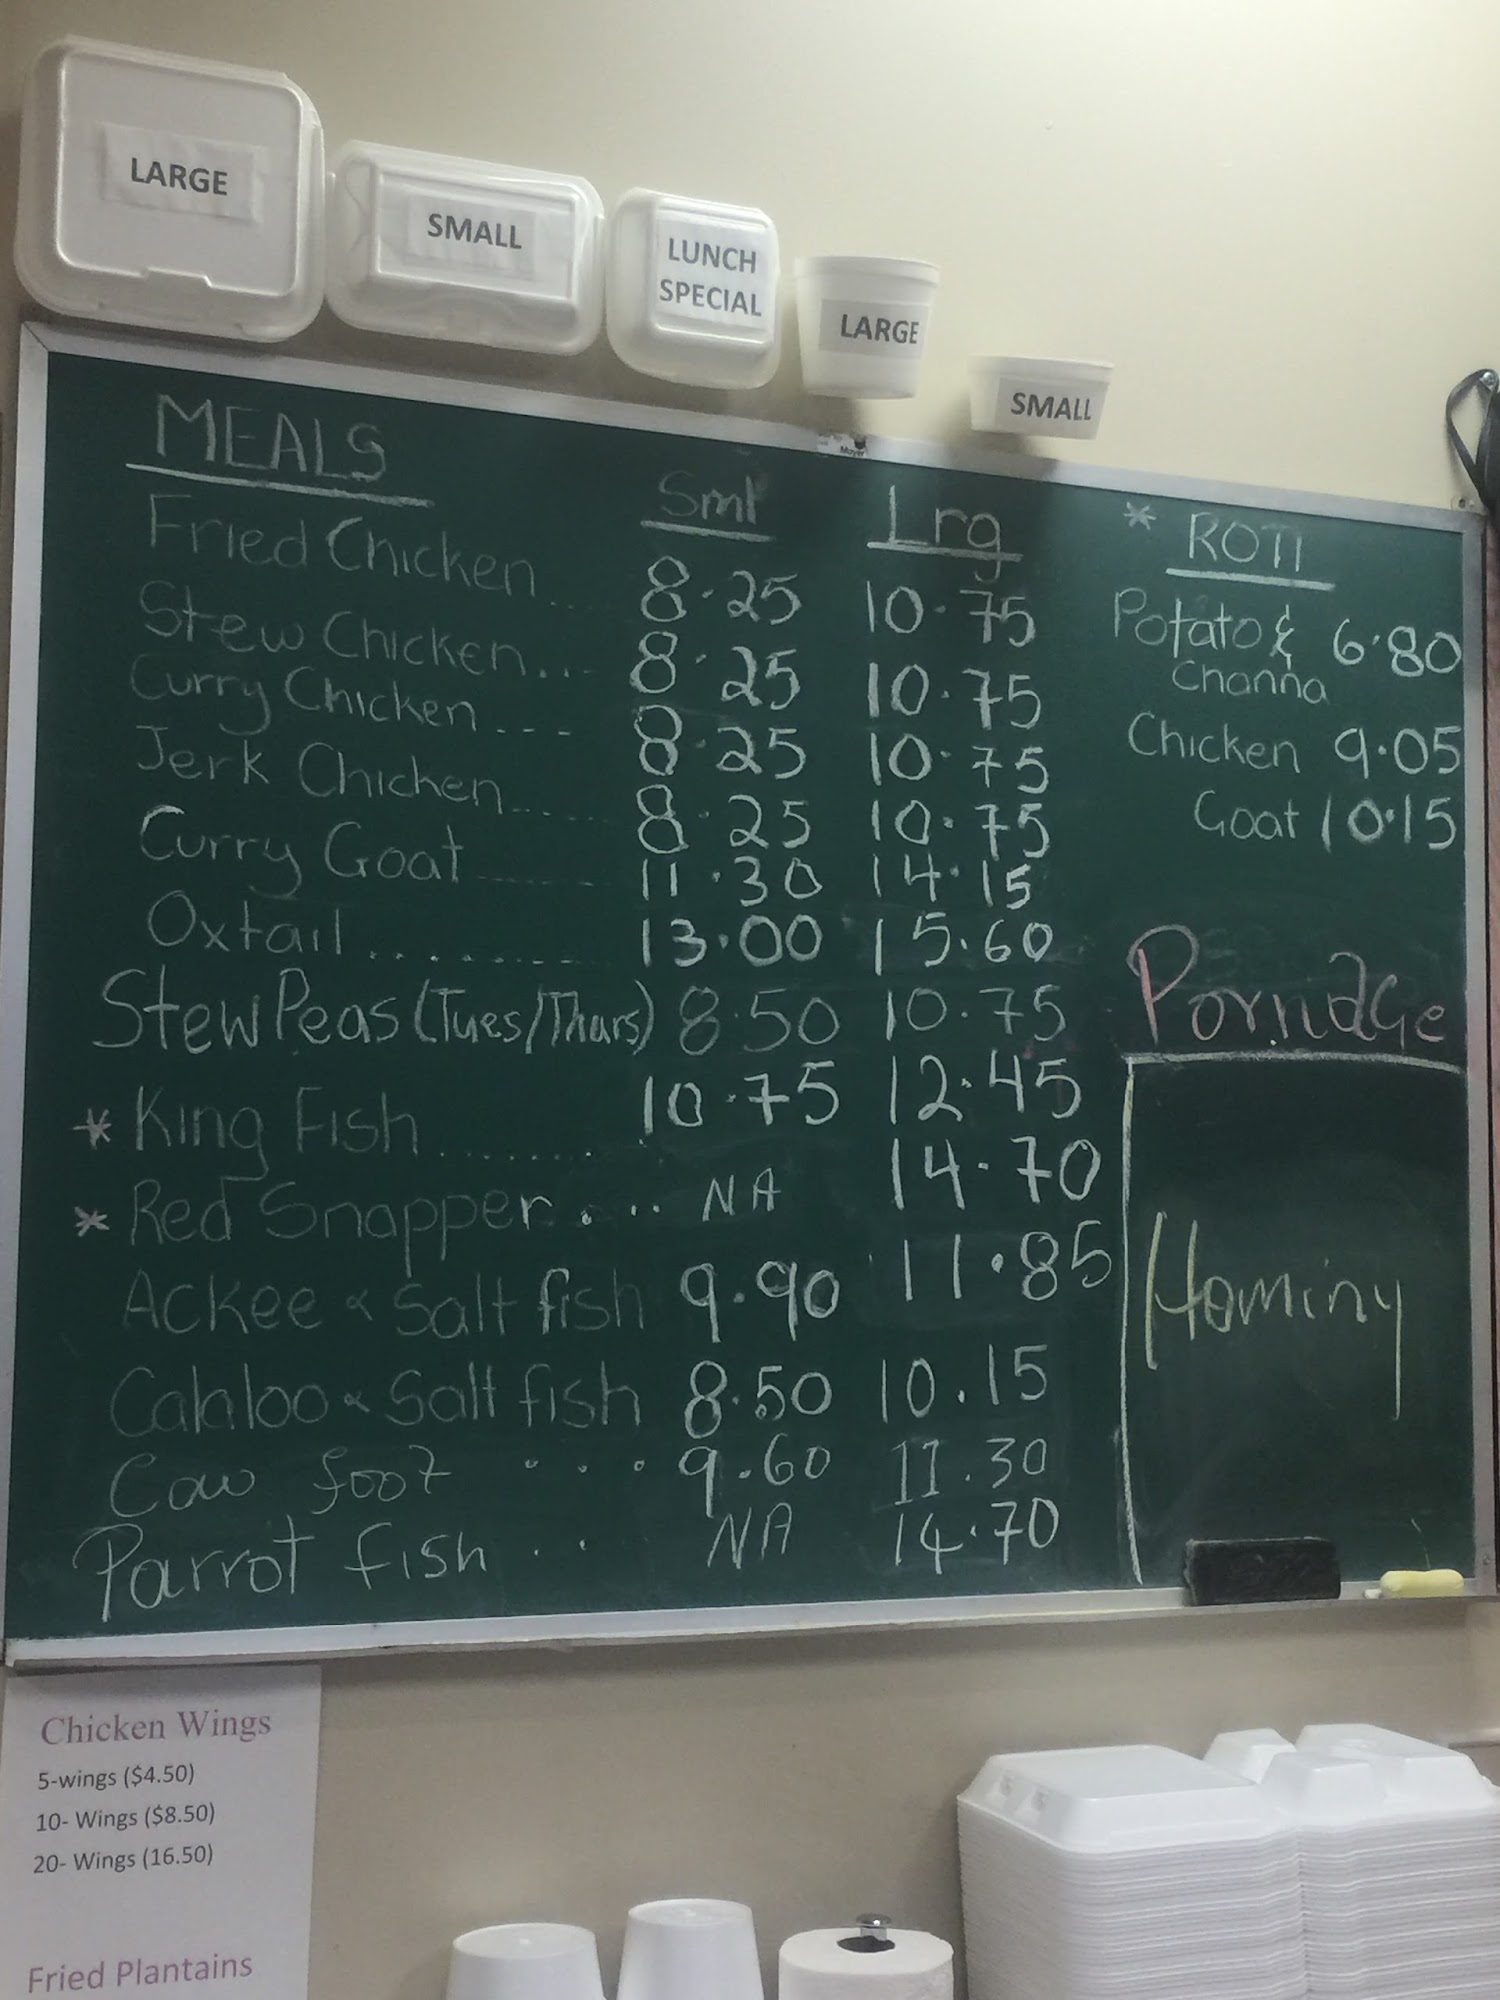 LARGE
SMALL
LUNCH
SPECIAL
LARGE
SMALL
MEALS Sml Lrg
Fried Chicken.... 8.25 10.75
Stew Chicken... 8.25 10.75
Curry Chicken... 8.25 10.75
Jerk Chicken.... 8.25 10.75
Curry Goat...... 11.30 14.15
Oxtail.......... 13.00 15.60
Stew Peas (Tues/Thurs) 8.50 10.75
* King Fish........ 10.75 12.45
* Red Snapper.... NA 14.70
Ackee & Salt fish 9.90 11.85
Calaloo & Salt fish 8.50 10.15
Cow foot .... 9.60 11.30
Parrot fish .. NA 14.70
* ROTI
Potato & 6.80
Channa
Chicken 9.05
Goat 10.15
Porridge
Hominy
Chicken Wings
5-wings ($4.50)
10- Wings ($8.50)
20- Wings (16.50)
Fried Plantains